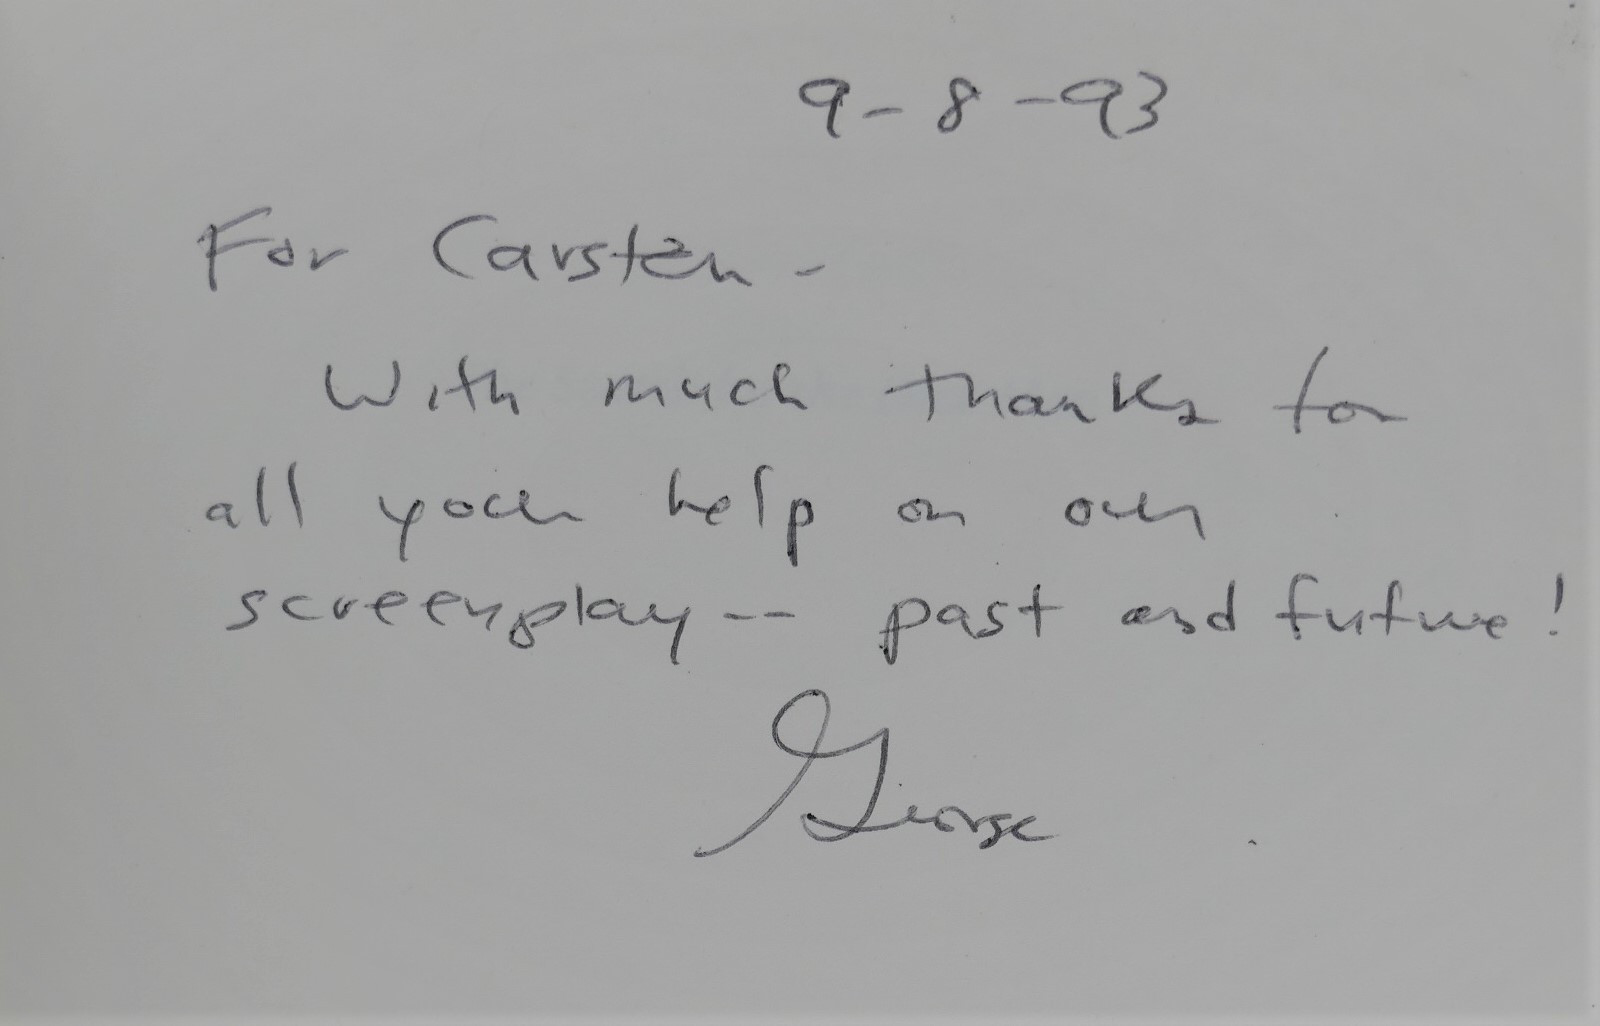 9-8-93
For Carsten -
With much thanks for
all your help on our
screenplay -- past and future!
George